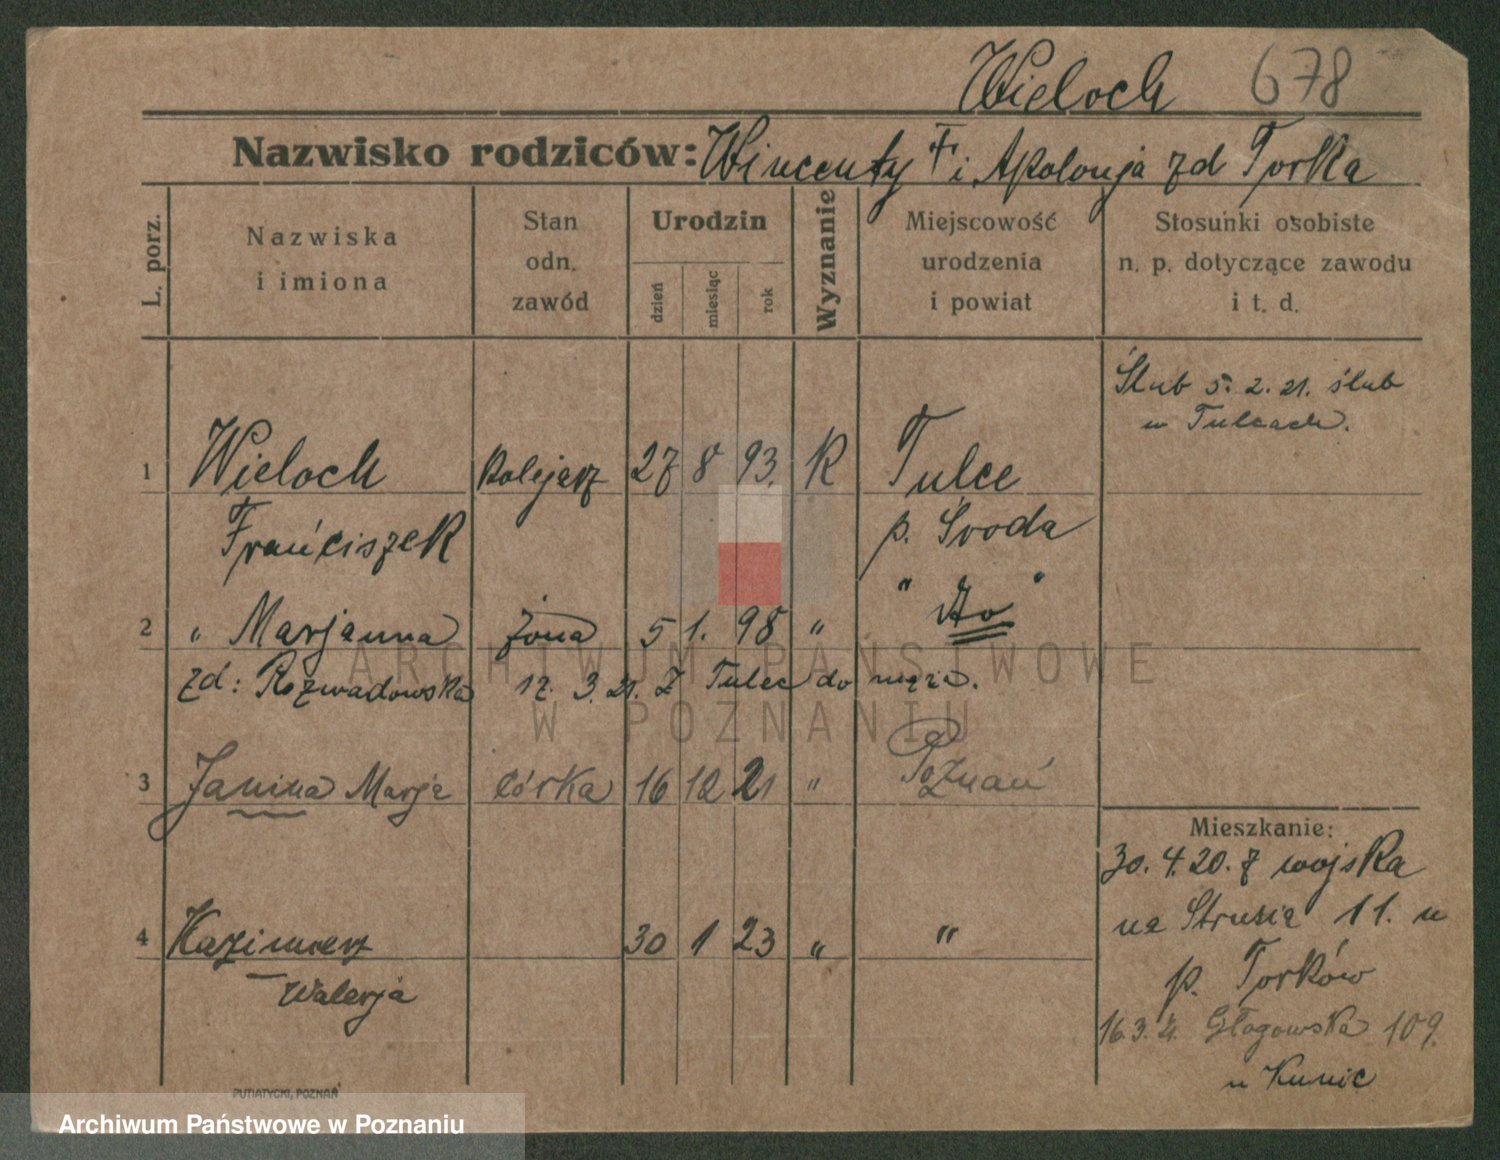 Wieloch 678
Nazwisko rodziców: Wincenty † i Apolonja zd Torka
L. porz.
Nazwiska i imiona
Stan odn. zawód
Urodzin
dzień
miesiąc
rok
Wyznanie
Miejscowość urodzenia i powiat
Stosunki osobiste n. p. dotyczące zawodu i t. d.
Ślub 5. 2. 21. ślub
w Tulcach.
1 Wieloch kolejarz 27 8 93. K Tulce
Franciszek p. Środa
2 " Marjanna żona 5 1. 98 " " dto "
zd: Rozwadowska 17. 3. 21. z Tulec do męża.
3 Janina Marja córka 16 12 21 " Poznań
4 Kazimierz 30 1 23 " "
Walerja
Mieszkanie:
30. 4. 20. z wojska
na Strusia 11. u
p. Torków
16.3. Głogowska 109.
u Kunic
PUTIATYCKI, POZNAŃ
ARCHIWUM PAŃSTWOWE
W POZNANIU
Archiwum Państwowe w Poznaniu